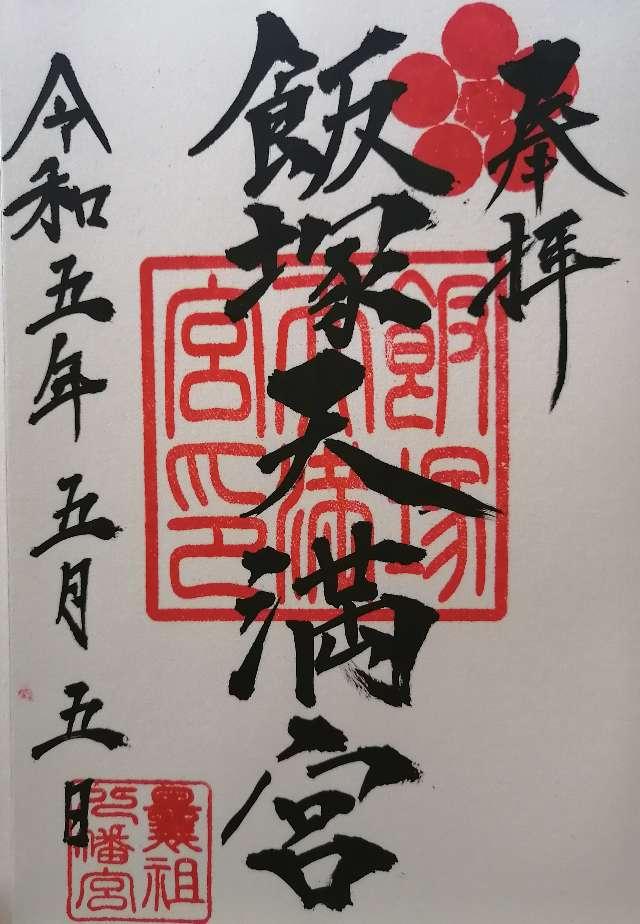 奉拝
飯塚天満宮
飯塚天満宮印
令和五年五月五日
曩祖八幡宮